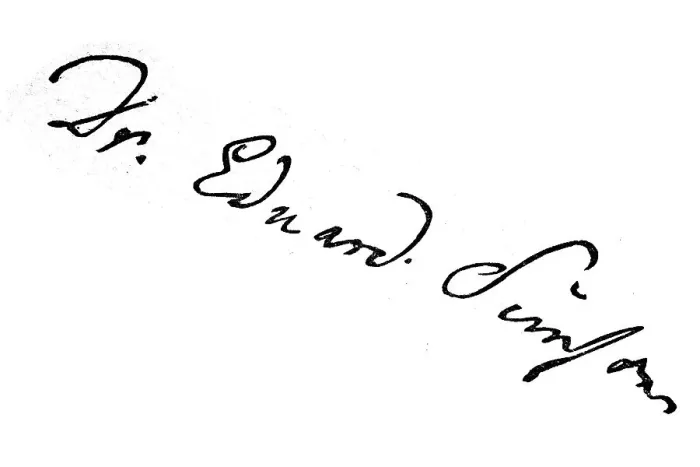 Dr. Eduard. Simson